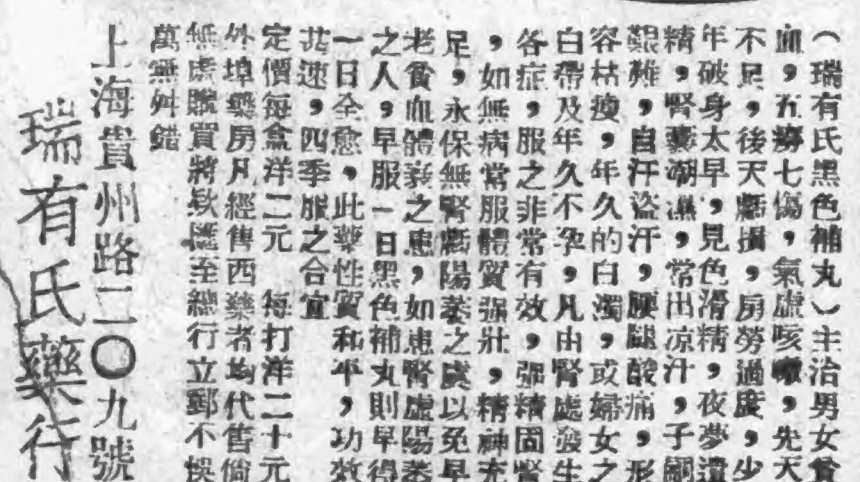 （瑞有氏黑色補丸）主治男女貧
血，五癆七傷，氣虛咳嗽，先天
不足，後天虧損，房勞過度，少
年破身太早，見色滑精，夜夢遺
精，腎囊潮濕，常出凉汁，子嗣
艱難，自汗盜汗，腰腿酸痛，形
容枯瘦，年久的白濁，或婦女之
白帶及年久不孕，凡由腎處發生
各症，服之非常有效，强精固腎
，如無病常服體質强壯，精神充
足，永保無腎虧陽萎之虞以免早
老貧血體衰之患，如患腎虛陽萎
之人，早服一日黑色補丸則早得
一日全愈，此藥性質和平，功效
甚速，四季服之合宜
定價每盒洋二元　每打洋二十元
外埠藥房凡經售西藥者均代售倘
無處購買將欵匯至總行立郵不悞
萬無舛錯
上海貴州路二〇九號
瑞有氏藥行